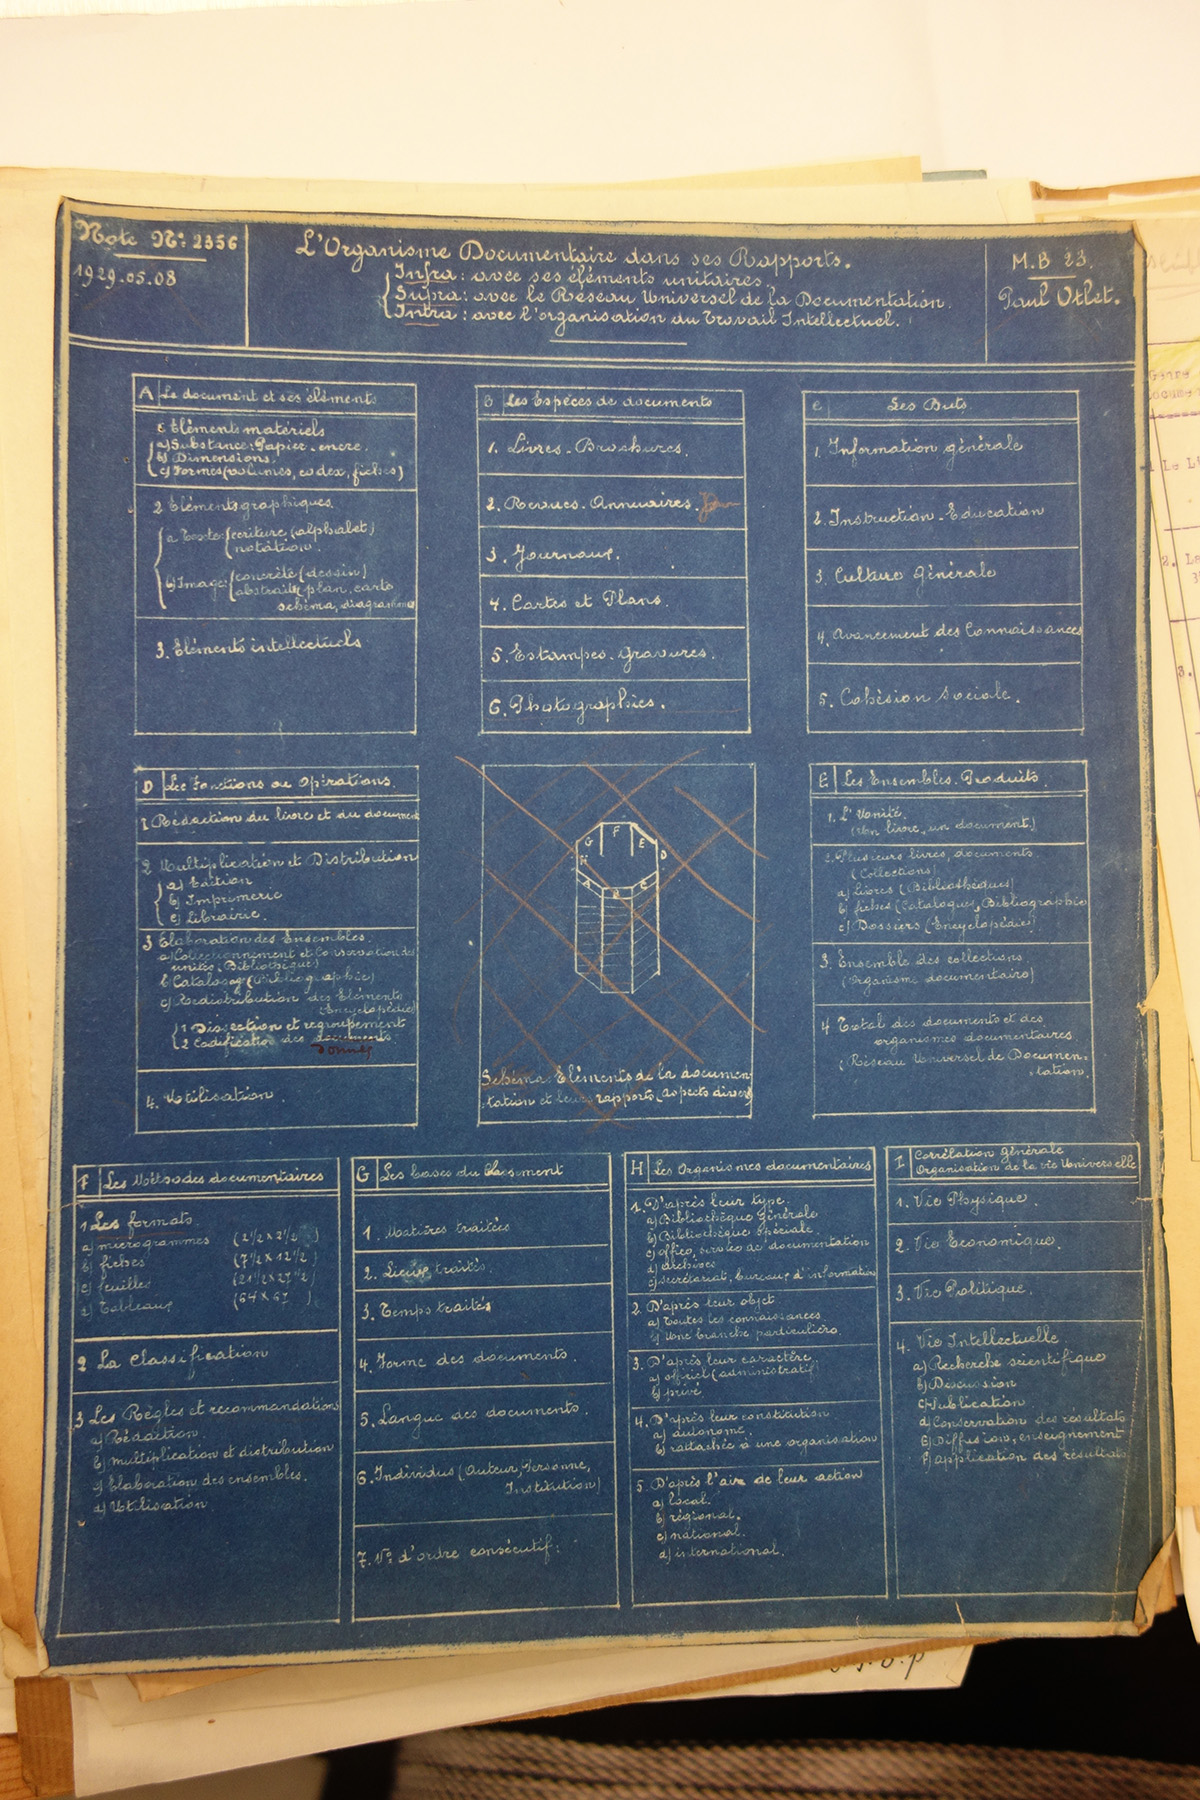 Note Nº 2356
1929.05.08
L'Organisme Documentaire dans ses Rapports.
Infra : avec ses éléments unitaires.
Supra : avec le Réseau Universel de la Documentation.
Intra : avec l'organisation du Travail Intellectuel.
M.B 23.
Paul Otlet.
A Le document et ses éléments
1 Eléments matériels
a) Substance: Papier - encre.
b) Dimensions.
c) Formes (volumes, codex, fiches)
2 Eléments graphiques
a Texte: écriture (alphabet)
notation.
b) Image: concrète (dessin)
abstraite plan, carte
schéma, diagramme
3. Eléments intellectuels
B Les Espèces de documents
1. Livres - Brochures.
2. Revues - Annuaires.
3. Journaux.
4. Cartes et Plans.
5. Estampes - gravures.
6. Photographies.
C Les Buts
1. Information générale
2. Instruction - Education
3. Culture générale
4. Avancement des Connaissances
5. Cohésion sociale.
D Les Fonctions ou Opérations.
1 Rédaction du livre et du document
2 Multiplication et Distribution
a) Edition
b) Imprimerie
c) Librairie.
3 Elaboration des Ensembles.
a) Collectionnement et Conservation des
unités (Bibliothèque)
b) Catalogage (Bibliographie)
c) Redistribution des Eléments
(Encyclopédie)
1 Dissection et regroupement
2 Codification des documents
données
4. Utilisation.
G F E
H D
A B C
Schéma: Eléments de la documen-
tation et leurs rapports (aspects divers)
E Les Ensembles - Produits.
1. L'Unité.
(Un livre, un document.)
2. Plusieurs livres, documents.
(Collections)
a) Livres (Bibliothèques)
b) fiches (Catalogues, Bibliographie
c) Dossiers (Encyclopédie)
3. Ensemble des collections
(Organisme documentaire)
4 Total des documents et des
organismes documentaires
(Réseau Universel de Documen-
tation.
F Les Méthodes documentaires
1 Les formats.
a) microgrammes (2 1/2 x 2 1/2)
b) fiches (7 1/2 x 12 1/2)
c) feuilles (21 1/2 x 27 1/2)
d) Tableaux (64 x 67)
2 La classification
3 Les Règles et recommandations
a) Rédaction.
b) multiplication et distribution
c) Elaboration des ensembles.
d) Utilisation.
G Les bases du Classement
1. Matières traitées
2. Lieux traités.
3. Temps traités
4. Forme des documents.
5. Langue des documents.
6. Individus (Auteur, Personne,
Institution)
7. Nº d'ordre consécutif:
H Les Organismes documentaires
1. D'après leur type.
a) Bibliothèque générale
b) Bibliothèque spéciale
c) office, service de documentation
d) archives
e) secrétariat, bureaux d'information
2. D'après leur objet
a) Toutes les connaissances
b) Une branche particulière.
3. D'après leur caractère
a) officiel (administratif)
b) privé.
4. D'après leur constitution
a) autonome.
b) rattachée à une organisation
5. D'après l'aire de leur action
a) local.
b) régional.
c) national.
d) international.
I Corrélation générale
Organisation de la vie Universelle
1. Vie Physique.
2. Vie Economique.
3. Vie Politique.
4. Vie Intellectuelle
a) Recherche scientifique
b) Discussion
c) Publication
d) Conservation des résultats
e) Diffusion, enseignement
f) application des résultats